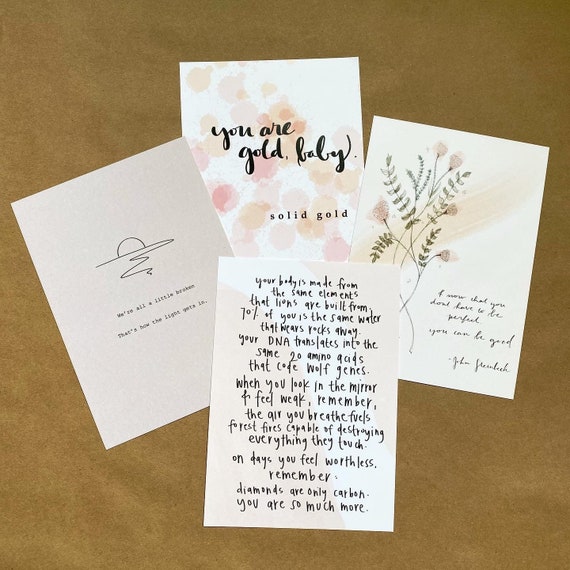 you are
gold, baby.
solid gold
We're all a little broken
That's how the light gets in.
& now that you
dont have to be
perfect,
you can be good
- John Steinbeck
your body is made from
the same elements
that lions are built from.
70% of you is the same water
that wears rocks away.
your DNA translates into the
same 20 amino acids
that code wolf genes.
when you look in the mirror
& feel weak, remember,
the air you breathe fuels
forest fires capable of destroying
everything they touch.
on days you feel worthless,
remember:
diamonds are only carbon.
you are so much more.